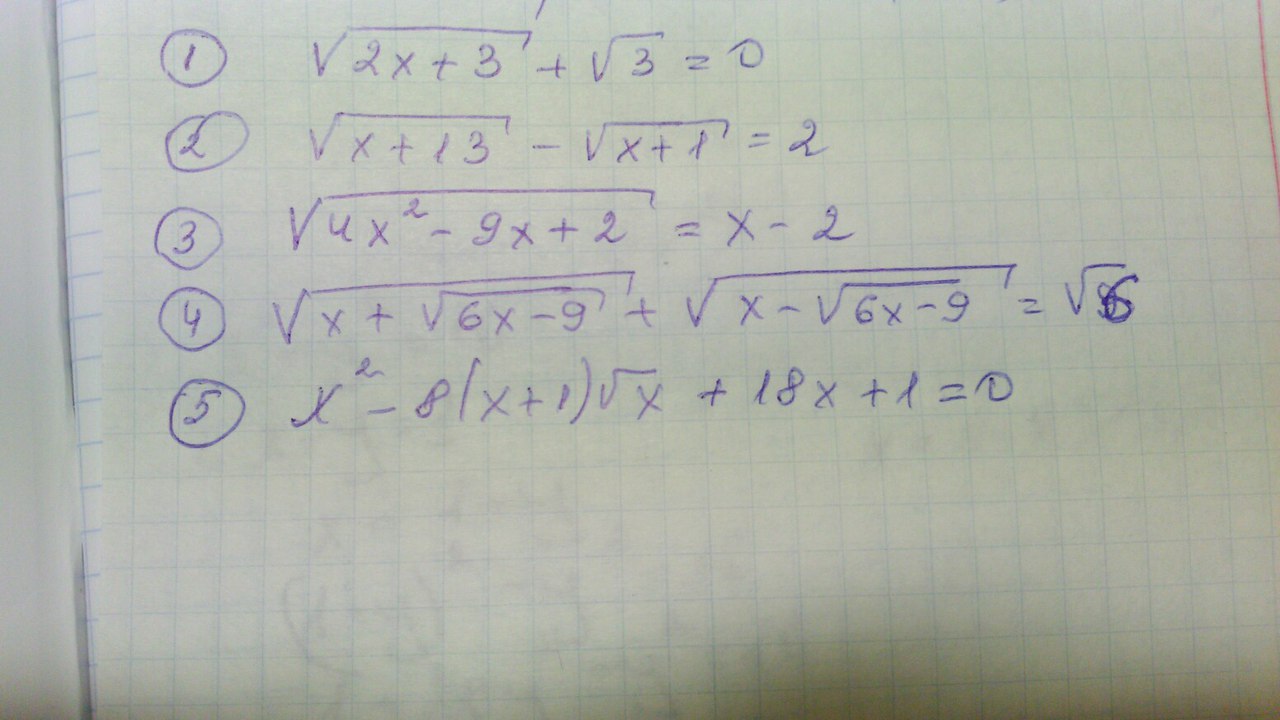 ① √(2x+3) + √3 = 0
② √(x+13) - √(x+1) = 2
③ √(4x² - 9x + 2) = x - 2
④ √(x + √(6x-9)) + √(x - √(6x-9)) = √6
⑤ x² - 8(x+1)√x + 18x + 1 = 0